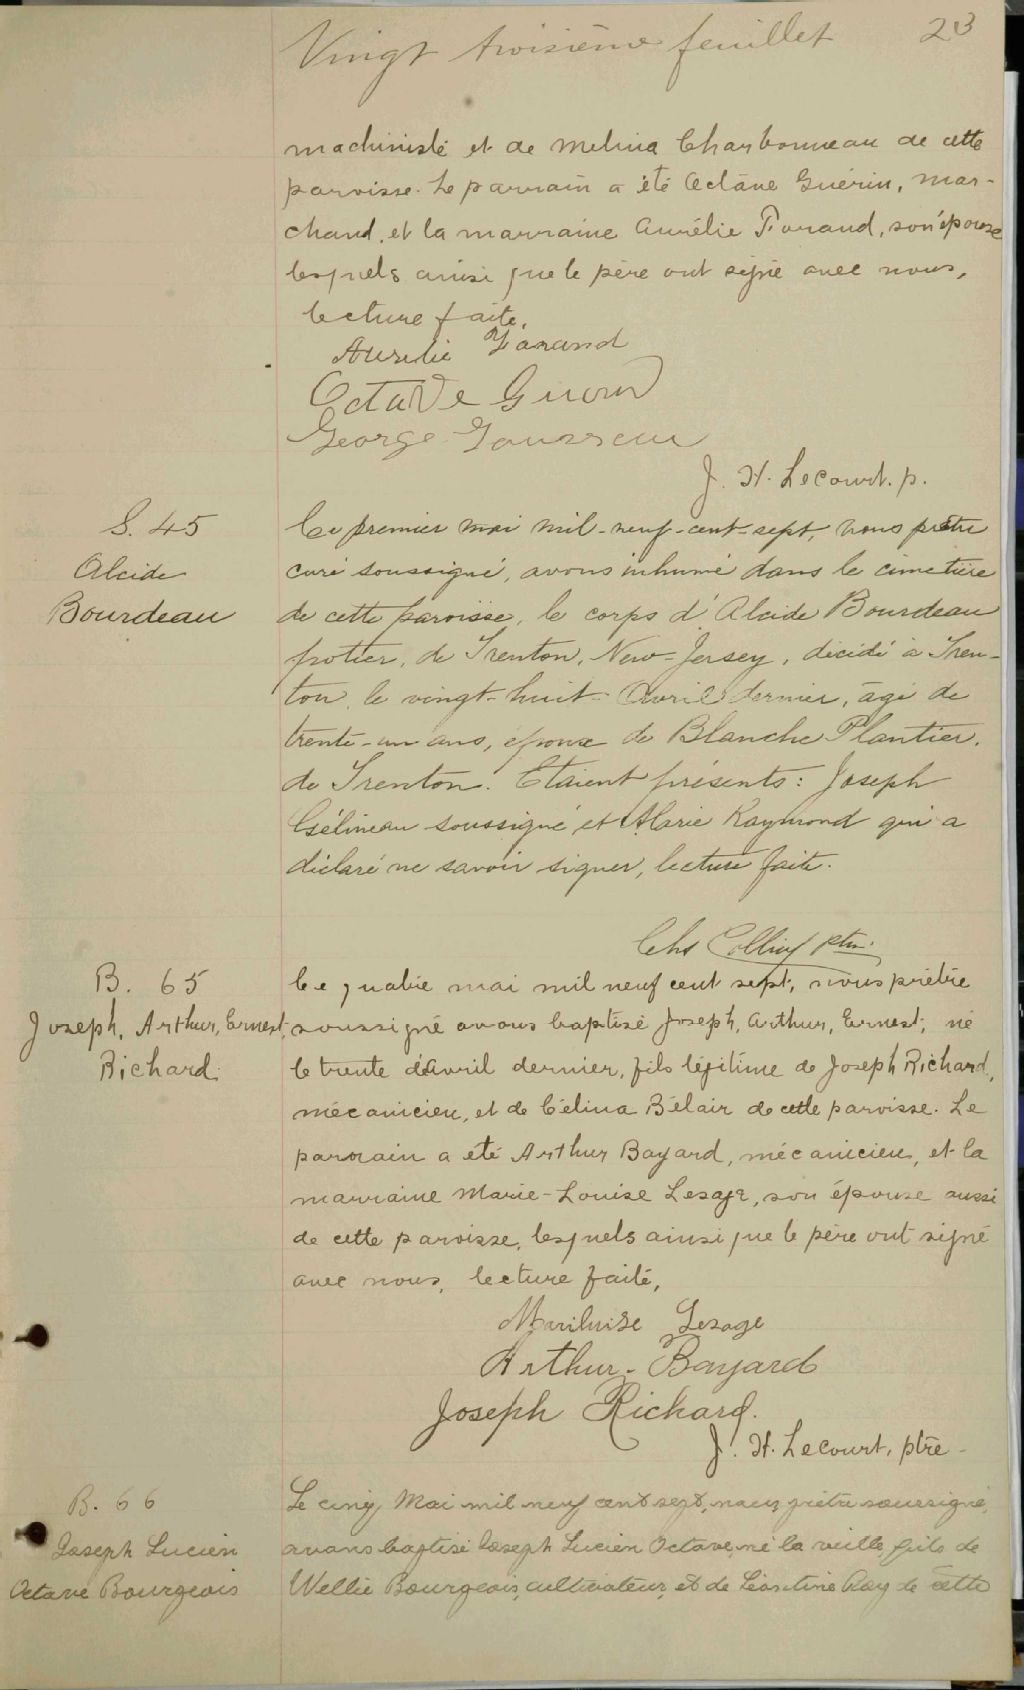 Vingt troisième feuillet 23
machiniste et de Melina Charbonneau de cette
paroisse. Le parrain a été Octave Guérin, mar-
chand, et la marraine Aurélie Farand, son épouse
lesquels ainsi que le père ont signé avec nous,
lecture faite.
Aurelie Farand
Octave Guerin
George
J. H. Lecourt. p.
S. 45
Alcide
Bourdeau
Ce premier mai mil-neuf-cent-sept, nous prêtre
curé soussigné, avons inhumé dans le cimetière
de cette paroisse, le corps d'Alcide Bourdeau
potier, de Trenton, New-Jersey, décédé à Tren-
ton, le vingt-huit Avril dernier, âgé de
trente-un ans, époux de Blanche Plantier,
de Trenton. Etaient présents: Joseph
Gélineau soussigné et Marie Raymond qui a
déclaré ne savoir signer, lecture faite.
Chs Collin ptre.
B. 65
Joseph, Arthur, Ernest,
Richard
Le quatre mai mil neuf cent sept, nous prêtre
soussigné avons baptisé Joseph, Arthur, Ernest, né
le trente d'avril dernier, fils légitime de Joseph Richard,
mécanicien, et de Célina Bélair de cette paroisse. Le
parrain a été Arthur Bayard, mécanicien, et la
marraine Marie-Louise Lesage, son épouse aussi
de cette paroisse, lesquels ainsi que le père ont signé
avec nous, lecture faite,
Mariluise Lesage
Arthur. Bayard
Joseph Richard.
J. H. Lecourt, ptre
B. 66
Joseph Lucien
Octave Bourgeois
Le cinq Mai mil neuf cent sept, nous, prêtre soussigné,
avons baptisé Joseph Lucien Octave, né la veille, fils de
Wellie Bourgeois, cultivateur, et de Léontine Roy de cette